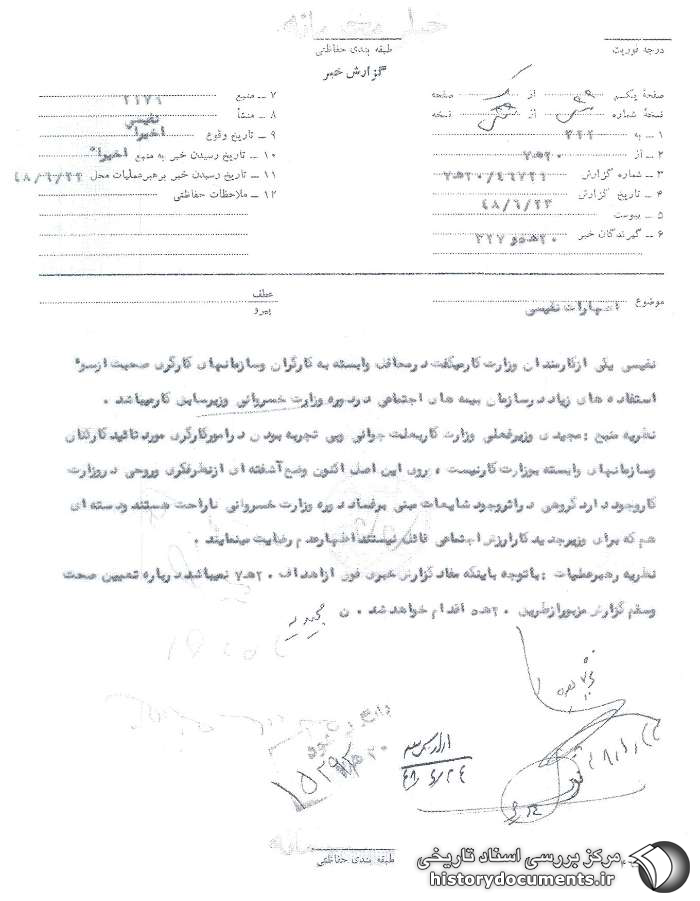 خیلی محرمانه
درجه فوریت
طبقه بندی حفاظتی
گزارش خبر
صفحهٔ یکم از صفحه
نسخهٔ شماره از نسخه
۱ ــ به ۳۲۲
۲ ــ از ۲۰ه۷
۳ ــ شماره گزارش ۲۰/۴۶۷۲۱ه۷
۴ ــ تاریخ گزارش ۴۸/۶/۲۳
۵ ــ پیوست
۶ ــ گیرندگان خبر ۲۰ه۵و ۳۲۷
۷ ــ منبع ۲۱۷۱
۸ ــ منشأ نفیسی
۹ ــ تاریخ وقوع اخیرا"
۱۰ ــ تاریخ رسیدن خبر به منبع اخیرا"
۱۱ ــ تاریخ رسیدن خبر برهبر عملیات محل ۴۸/۶/۲۲
۱۲ ــ ملاحظات حفاظتی
موضوع اظهارات نفیسی
عطف
پیرو
نفیسی یکی ازکارمندان وزارت کارمیگفت درمحافل وابسته به کارگران وسازمانهای کارگری صحبت ازسوء
استفاده های زیاد درسازمان بیمه های اجتماعی دردوره وزارت خسروانی وزیرسابق کارمیباشد .
نظریه منبع : مجیدی وزیرفعلی وزارت کاربعلت جوانی وبی تجربه بودن درامورکارگری مورد تائید کارکنان
وسازمانهای وابسته بوزارت کارنیست ، روی این اصل اکنون وضع آشفته ای ازنظرفکری وروحی دروزارت
کاروجود دارد گروهی دراثروجود شایعات مبنی برفساد دوره وزارت خسروانی ناراحت هستند ودسته ای
هم که برای وزیرجدید کارارزش اجتماعی قائل نیستند اظهارعدم رضایت مینمایند .
نظریه رهبرعملیات : باتوجه باینکه مفاد گزارش خبری فوق ازاهداف ۲۰ه۷ نمیباشد درباره تعیین صحت
وسقم گزارش مزبورازطریق ۲۰ه۵ اقدام خواهد شد . ن
مجیدیه
۴۸/۶/۲۴
طبقه بندی حفاظتی
مرکز بررسی اسناد تاریخی
historydocuments.ir